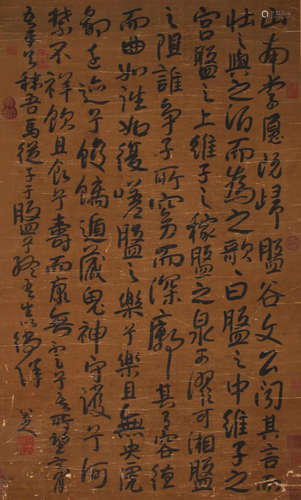 山南李愿説歸盤谷文公闻其言而
壯之與之酒而為之歌曰盤之中維子之
宮盤之上維子之稼盤之泉可濯可湘盤
之阻誰争子所窈而深廓其有容繚
而曲如往如復嗟盤之樂兮樂且無央虎
豹遠迹兮蛟龍遁藏鬼神守護兮呵
禁不祥飲且食兮壽而康無不足兮奚所望膏
吾車兮秣吾馬從子于盤兮終吾生以徜徉